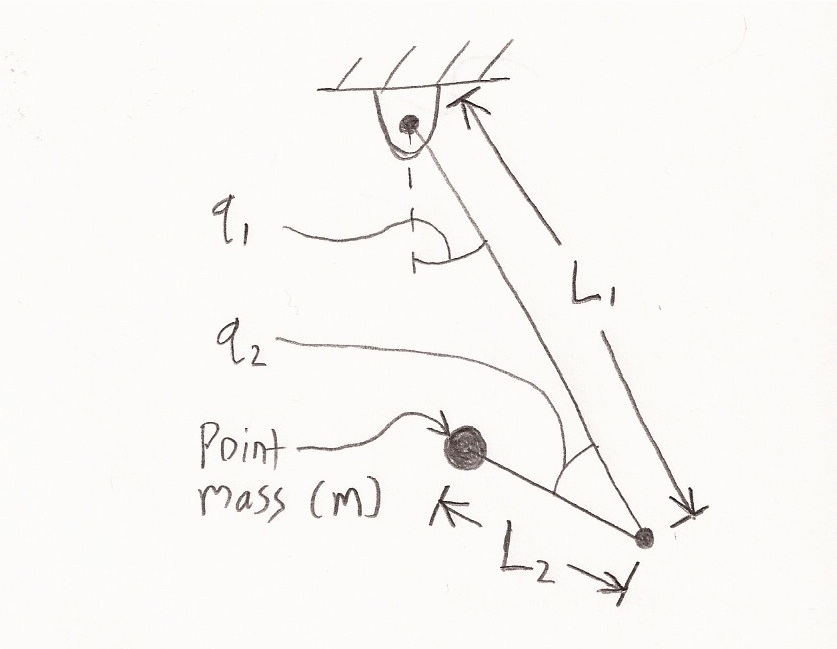 q₁
L₁
q₂
Point
mass (m)
L₂